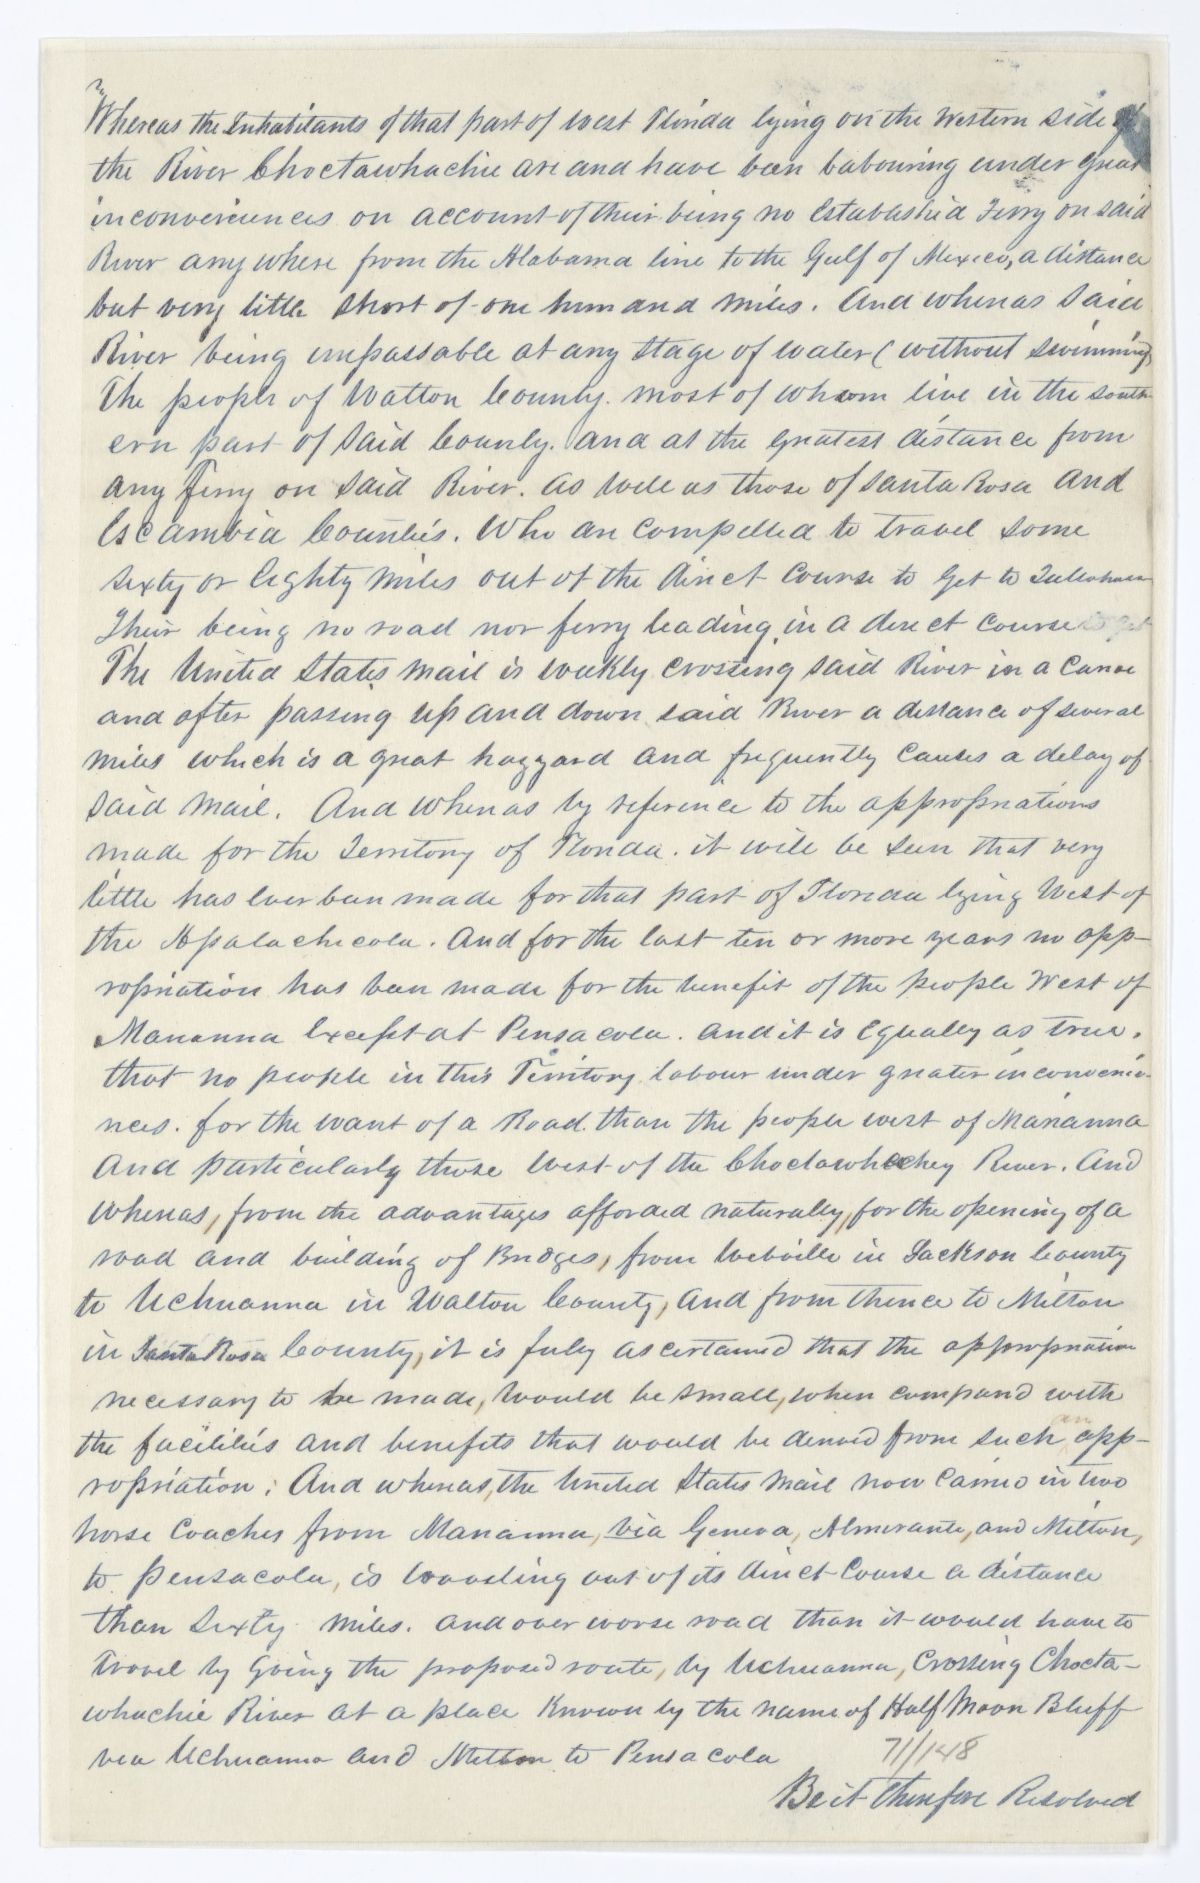 Whereas the Inhabitants of that part of West Florida lying on the Western side of
the River Choctawhachie are and have been labouring under great
inconveniences on account of their being no established Ferry on said
River any where from the Alabama line to the Gulf of Mexico, a distance
but very little short of one hundred miles. And whereas said
River being impassable at any stage of water ( without swimming)
The people of Walton County. most of whom live in the south-
ern part of said County. and at the greatest distance from
any Ferry on said River. as well as those of Santa Rosa And
Escambia Counties. Who are Compelled to travel some
sixty or Eighty miles out of the direct Course to get to
Their being no road nor ferry leading in a direct course to get
The United States mail is weekly crossing said River in a Canoe
and after passing up and down said River a distance of several
miles which is a great hazzard and frequently Causes a delay of
said mail. And whereas by reference to the appropriations
made for the Territory of Florida. it will be seen that very
little has Ever been made for that part of Florida lying West of
the Apalachicola. And for the last ten or more years no app-
ropriation has been made for the benefit of the people West of
Marianna Except at Pensacola. and it is Equally as true.
that no people in this Territory labour under greater inconvenie-
nces. for the want of a Road. than the people west of Marianna
And particularly those West of the Choctawhachey River. And
whereas, from the advantages afforded naturally, for the opening of a
road and building of Bridges, from Webville in Jackson County
to Uchuanna in Walton County, And from thence to Milton
in Santa Rosa County, it is fully ascertained that the appropriation
necessary to be made, would be small, when compared with
the facilities and benefits that would be derived from such an app-
ropriation; And whereas, the United States Mail now Carried in two
horse Coaches from Marianna, via Geneva, Almirante, and Milton,
to Pensacola, is traveling out of its direct Course a distance
than Sixty miles. and over worse road than it would have to
travel by going the proposed route, by Uchuanna, Crossing Chocta-
whachie River at a place Known by the name of Half Moon Bluff
via Uchuanna and Milton to Pensacola
71/148
Be it therefore Resolved